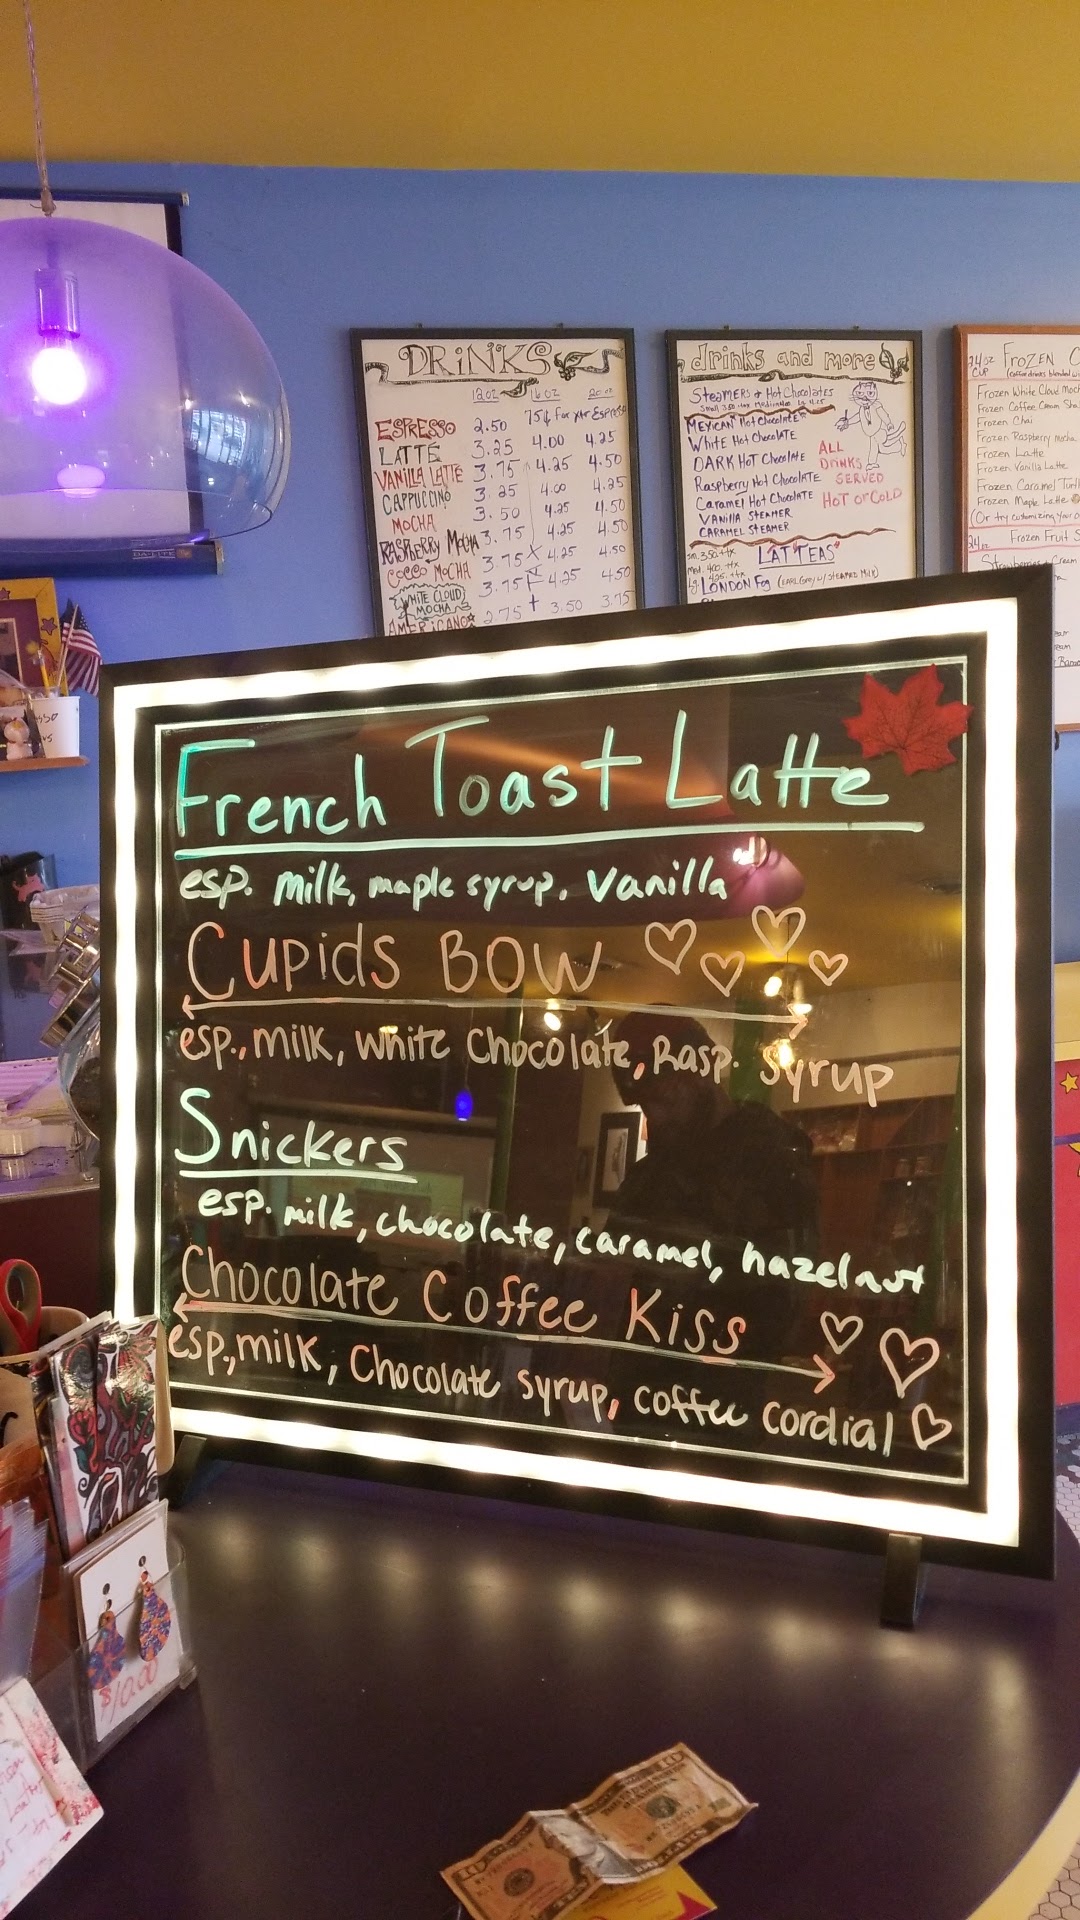 DRINKS
12 OZ 16 OZ 20 OZ
75¢ for xtr Espresso
ESPRESSO 2.50
LATTE 3.25 4.00 4.25
VANILLA LATTE 3.75 4.25 4.50
CAPPUCCINO 3.25 4.00 4.25
MOCHA 3.50 4.25 4.50
RASPBERRY MOCHA 3.75 4.25 4.50
COCCO MOCHA 3.75 4.25 4.50
WHITE CLOUD MOCHA 3.75 4.25 4.50
AMERICANO 2.75 3.50 3.75
drinks and more
STEAMERS & HOT CHOCOLATES
MEXICAN HOT CHOCOLATE
WHITE HOT CHOCOLATE
DARK HOT CHOCOLATE
Raspberry HOT CHOCOLATE
Caramel Hot CHOCOLATE
VANILLA STEAMER
CARAMEL STEAMER
ALL
DRINKS
SERVED
HOT or COLD
LAT"TEAS"
LONDON FOG (EARL Grey w/ STEAMED MILK)
24 oz CUP
FROZEN
Frozen White Cloud
Frozen Coffee Cream
Frozen Chai
Frozen Raspberry mocha
Frozen Latte
Frozen Vanilla Latte
Frozen Caramel
Frozen Maple Latte
(Or try customizing your
24 oz Frozen Fruit
DA-LITE
French Toast Latte
esp. milk, maple syrup, vanilla
Cupids BOW
esp., milk, white chocolate, Rasp. syrup
Snickers
esp. milk, chocolate, caramel, hazelnut
Chocolate Coffee Kiss
esp, milk, Chocolate syrup, coffee cordial
$10.00